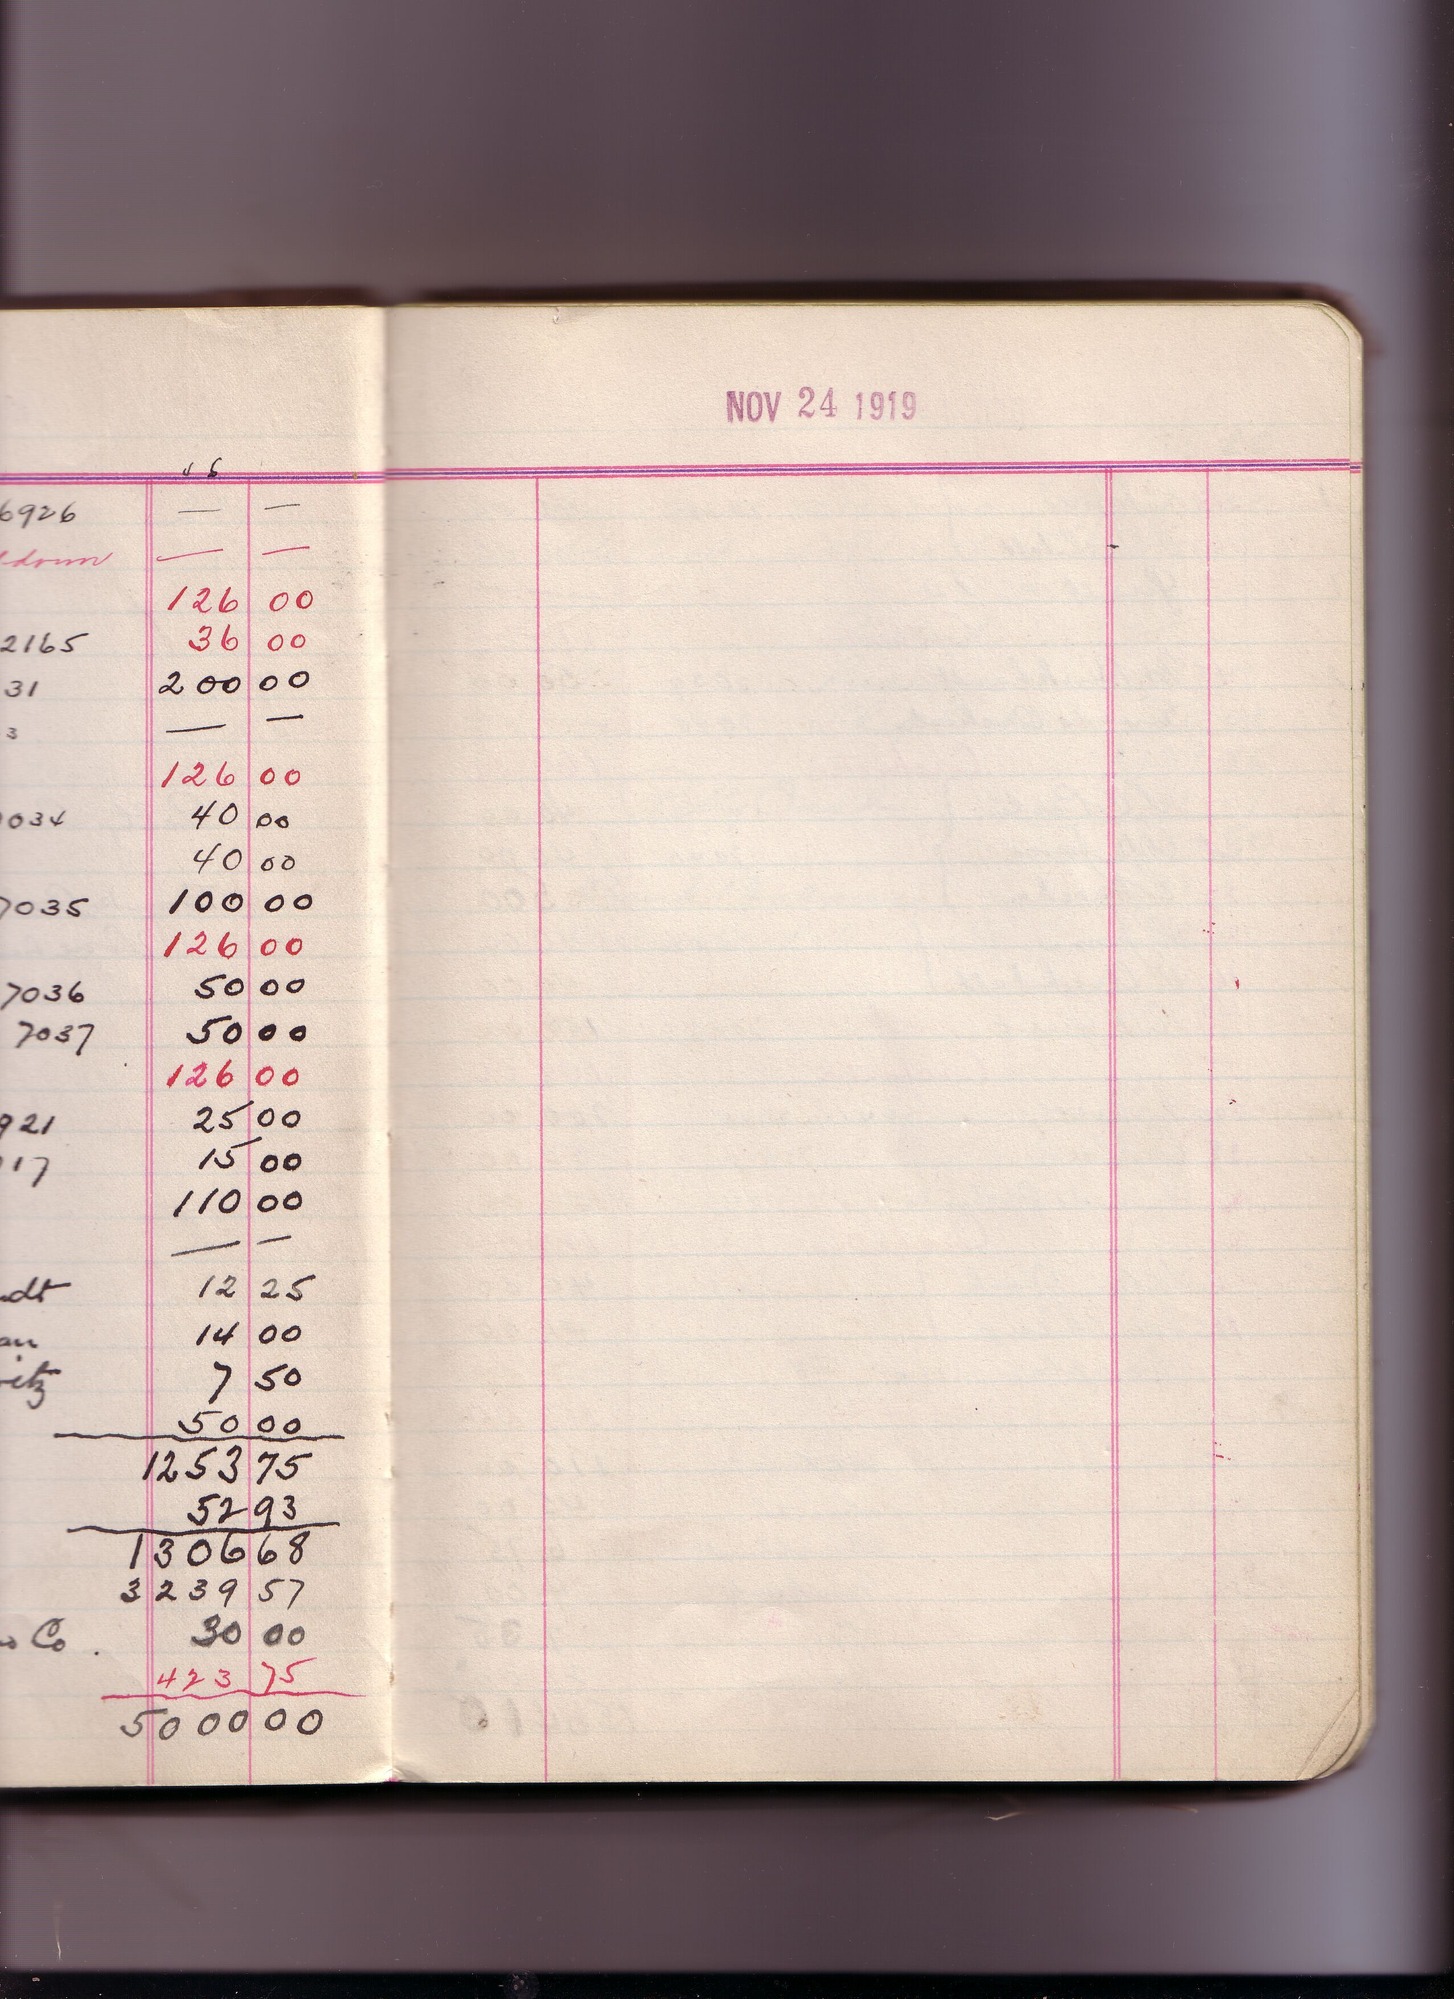 NOV 24 1919
6926 — —
down — —
126 00
2165 36 00
31 200 00
3 — —
126 00
034 40 00
40 00
7035 100 00
126 00
7036 50 00
7037 50 00
126 00
921 25 00
17 15 00
110 00
— —
dt 12 25
an 14 00
itz 7 50
50 00
1253 75
52 93
1306 68
3239 57
Co. 30 00
423 75
5000 00